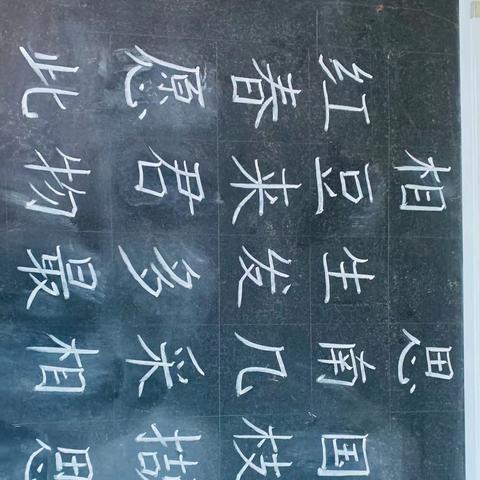 相思
红豆生南国
春来发几枝
愿君多采撷
此物最相思